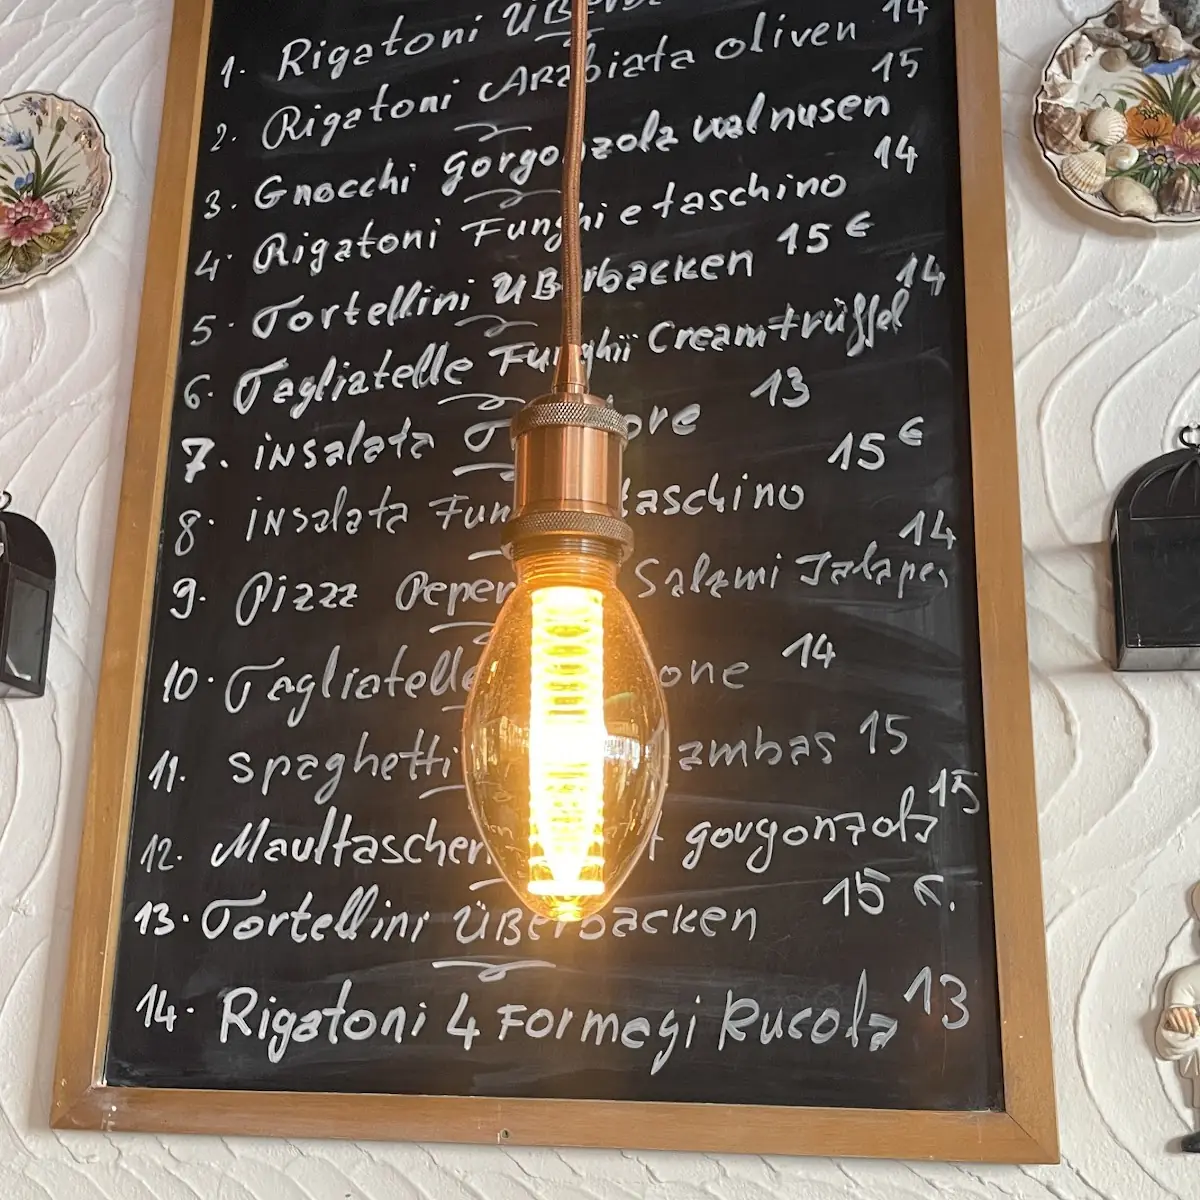 1. Rigatoni
2. Rigatoni Arabiata oliven 14
3. Gnocchi gorgonzola walnusen 15
4. Rigatoni Funghi e taschino 14
5. Tortellini überbacken 15 €
6. Tagliatelle Funghii Creamtrüffel 14
7. insalata 13
8. insalata taschino 15 €
9. Pizza Salami 14
10. Tagliatelle 14
11. spaghetti 15
12. Maultaschen gorgonzola 15
13. Tortellini überbacken 15 €.
14. Rigatoni 4 Formagi Rucola 13